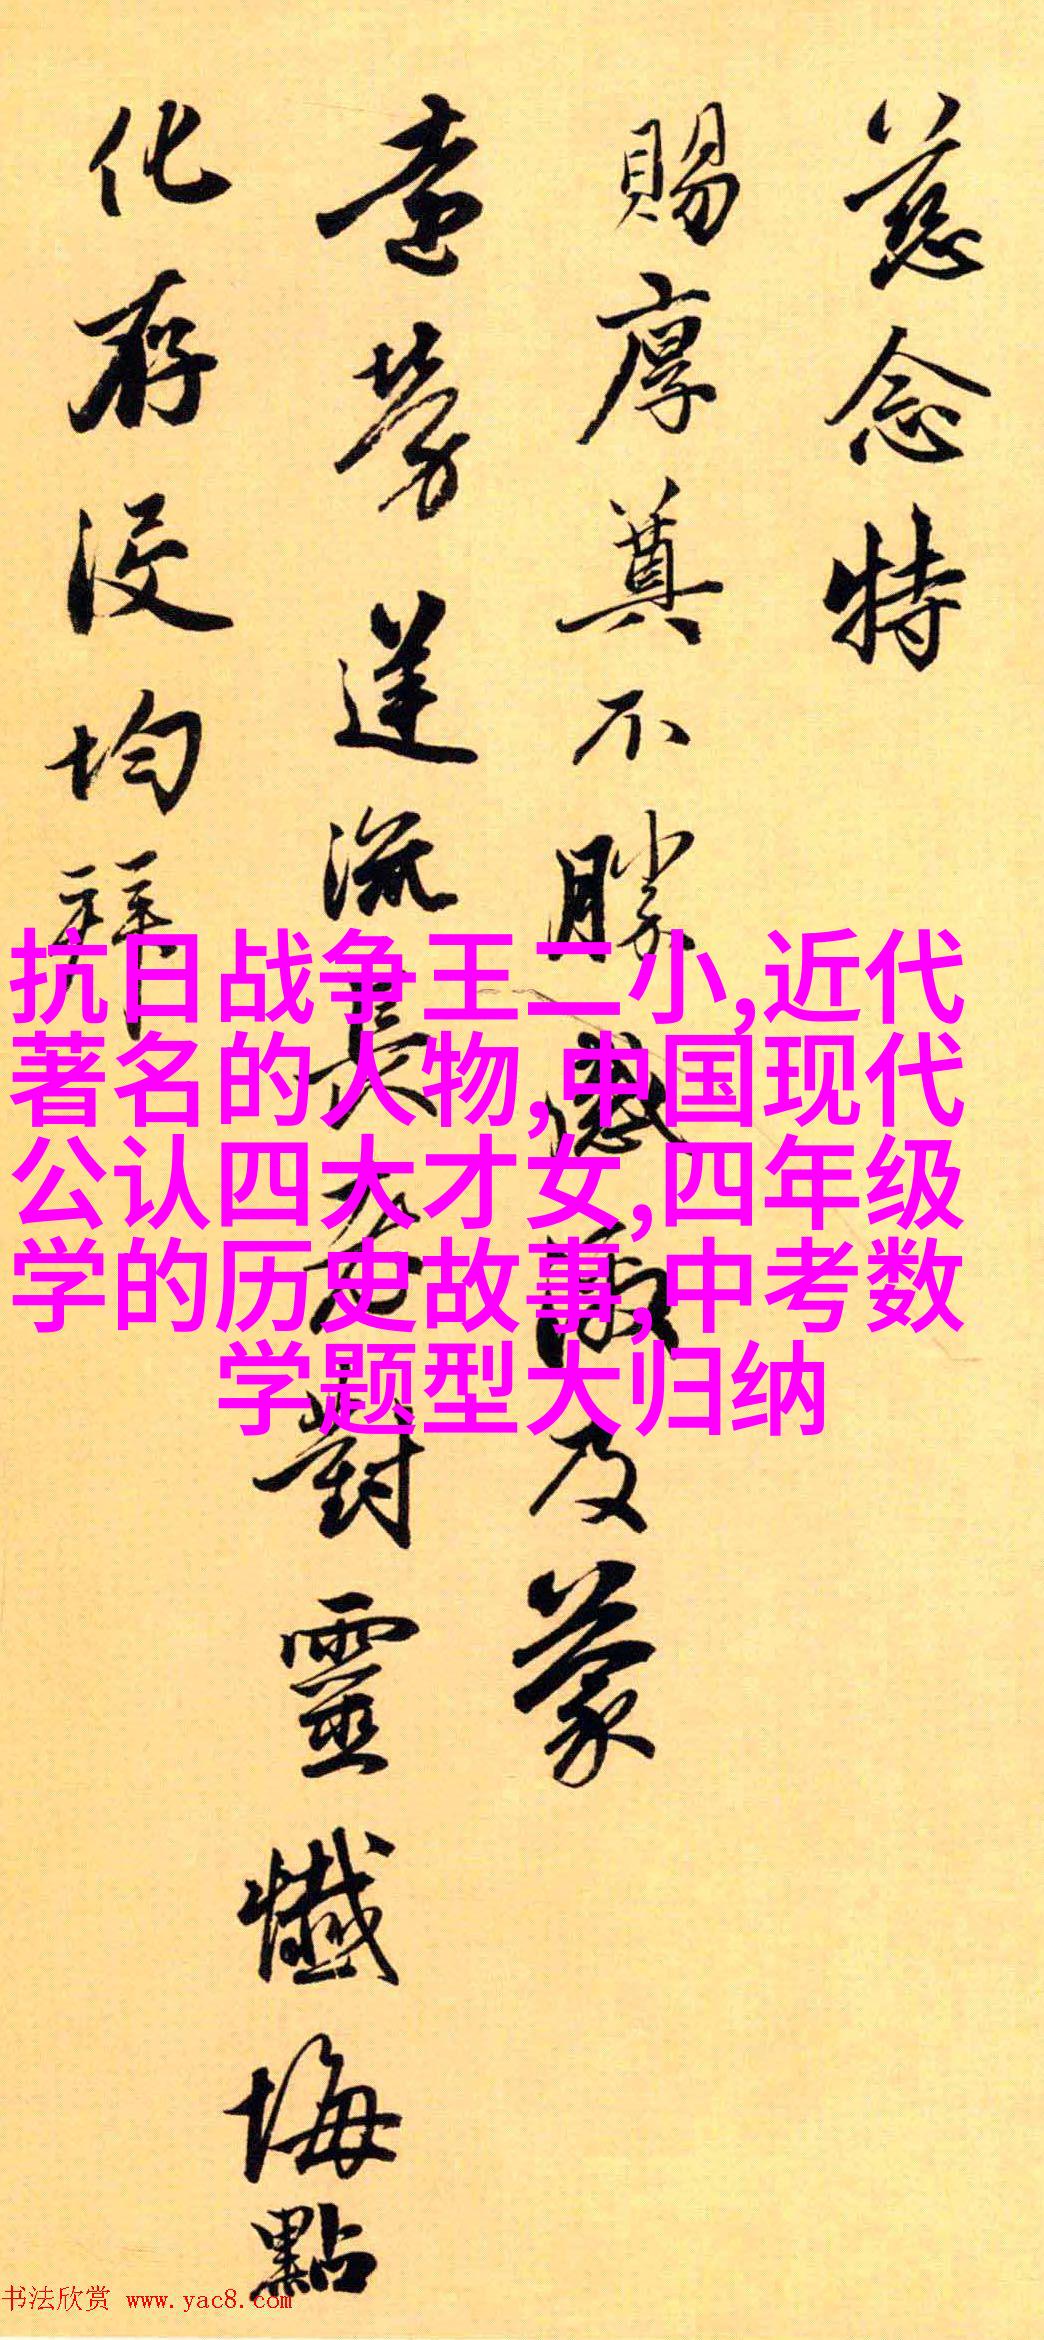 慈念特
賜厚奠不勝感激及蒙
遠勞蓮流長老對靈懺悔點
化存没均拜
抗日战争王二小,近代
著名的人物,中国现代
公认四大才女,四年级
学的历史故事,中考数
学题型大归纳
书法欣赏 www.yac8.com